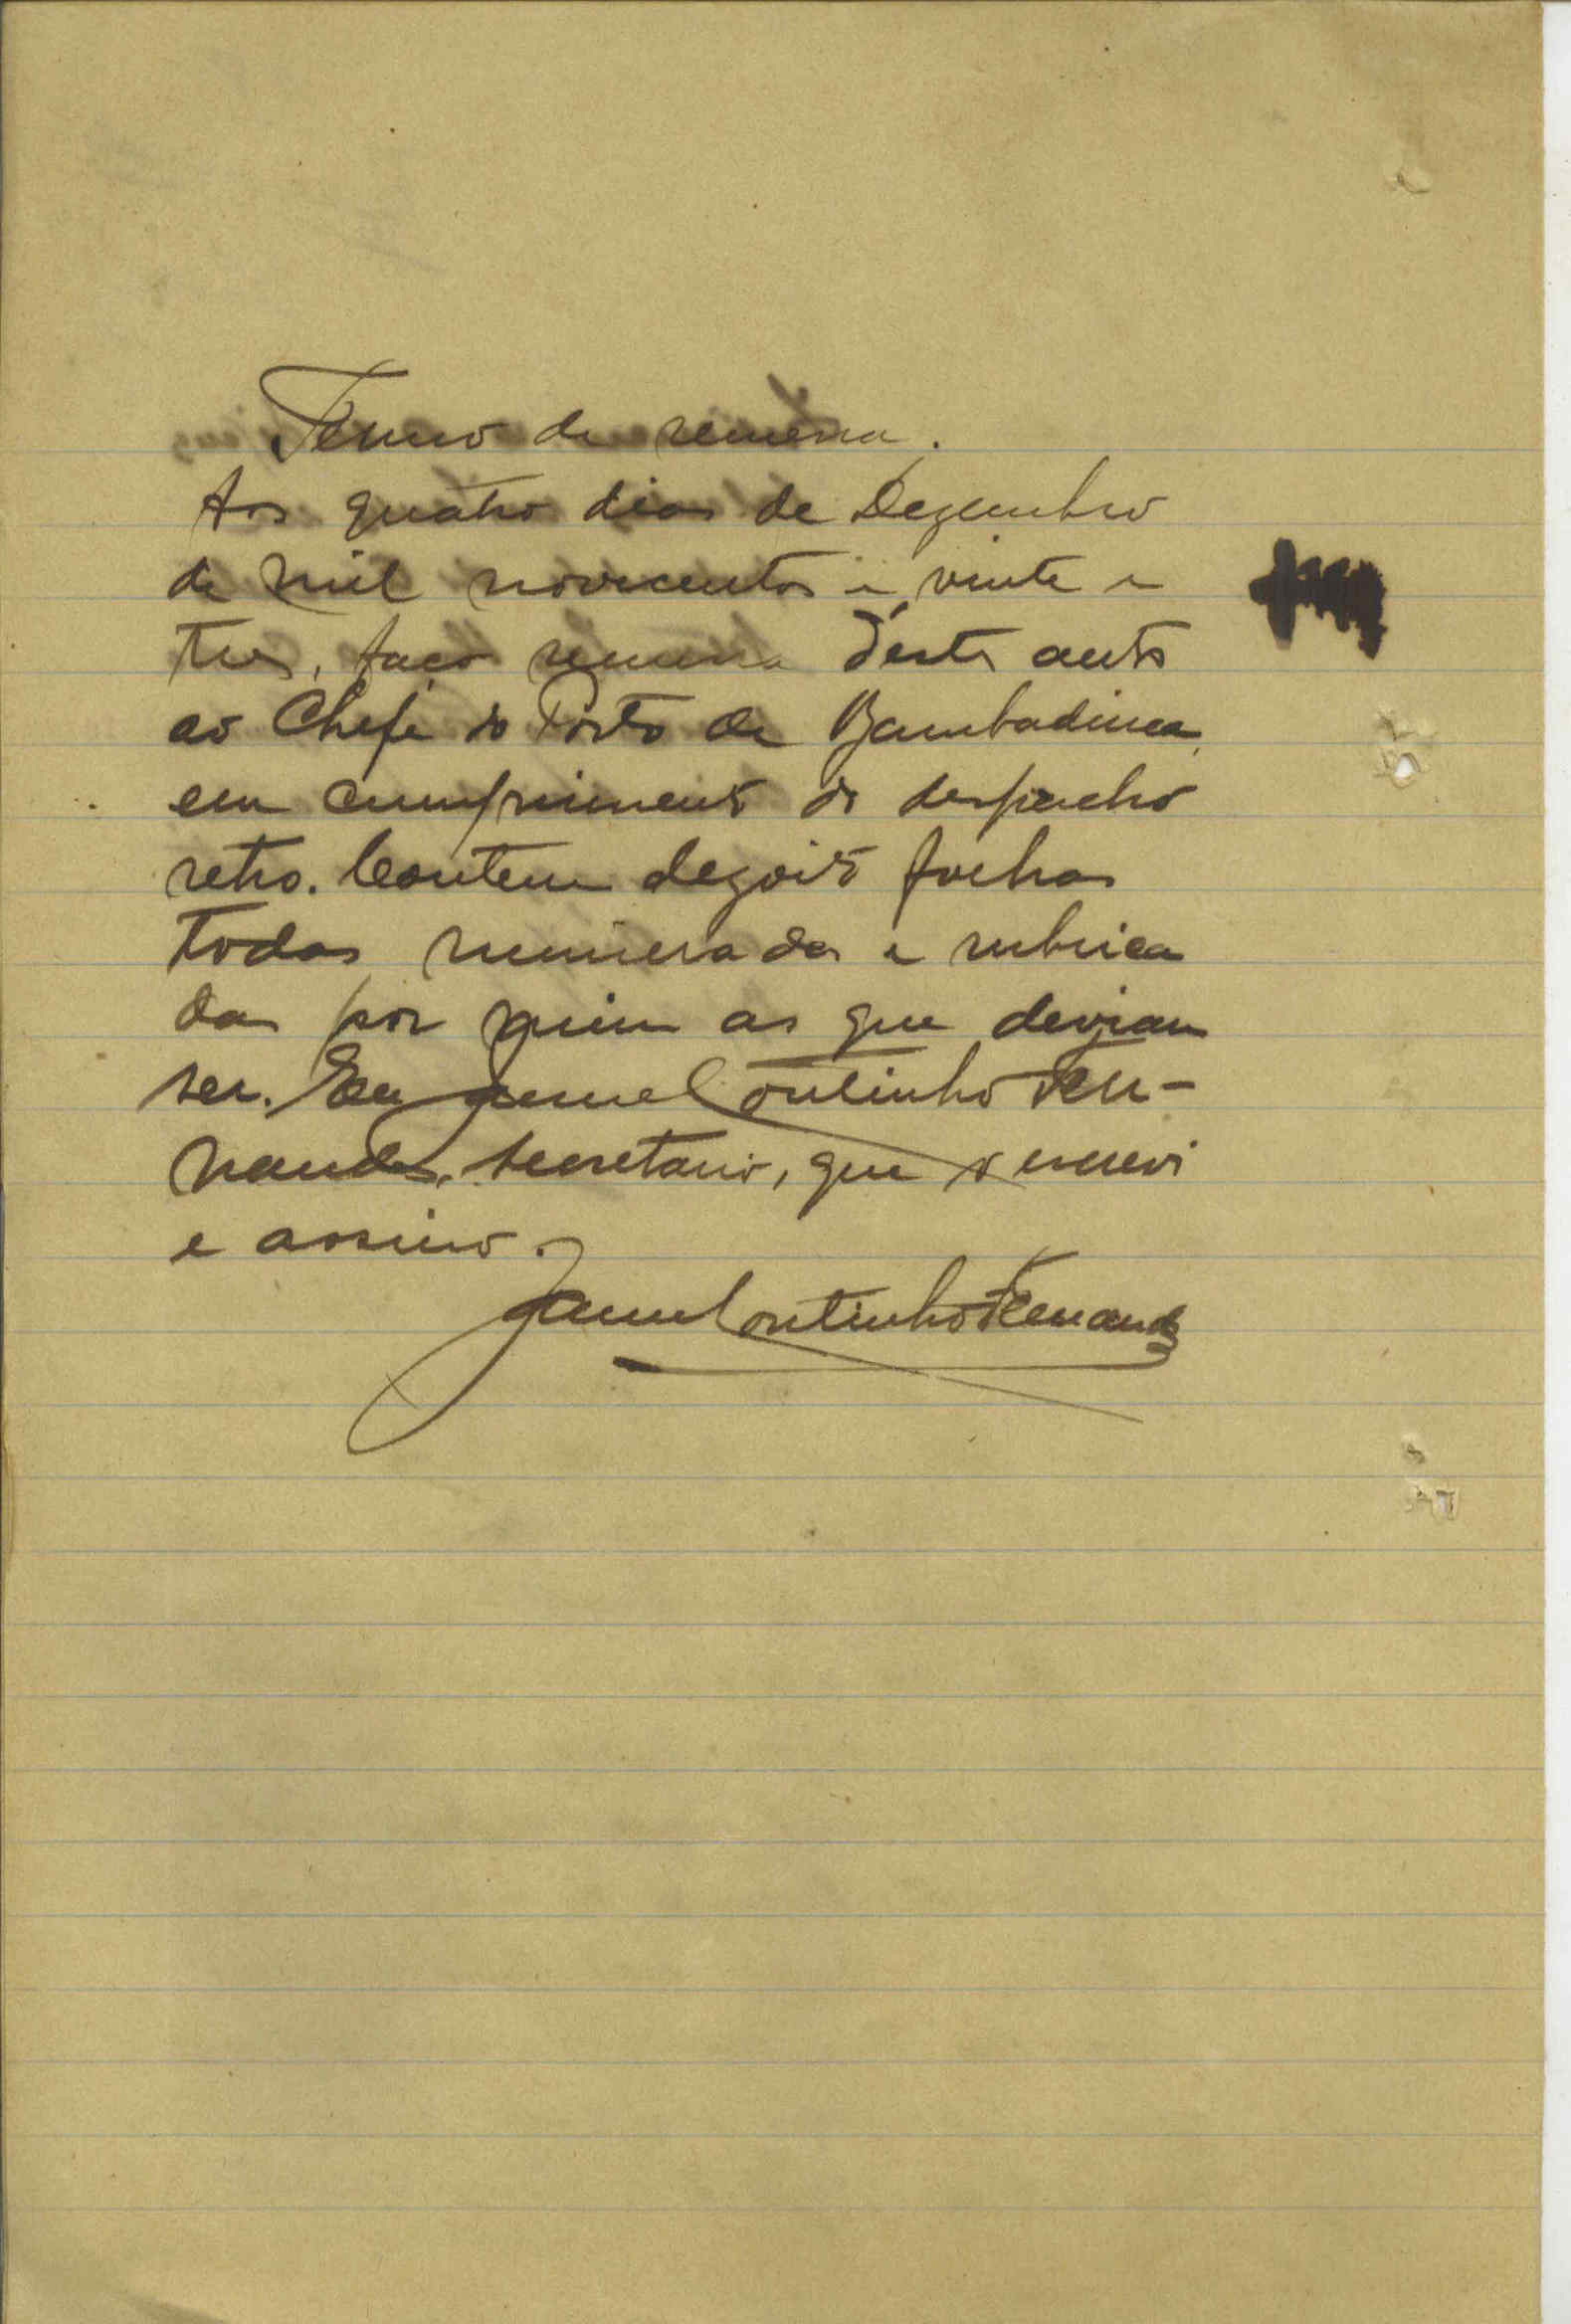 Termo de remessa.
Aos quatro dias de Dezembro
de mil novecentos e vinte e
tres, faço remessa déste auto
ao Chefe do Posto de Bambadinca
em cumprimento do despacho
retro. Contem dezoito folhas
todas numeradas e rubrica
das por quem as que deviam
ser. Eu Jaime Coutinho Fer-
nandes, secretario, que o escrevi
e assino.
Jaime Coutinho Fernandes